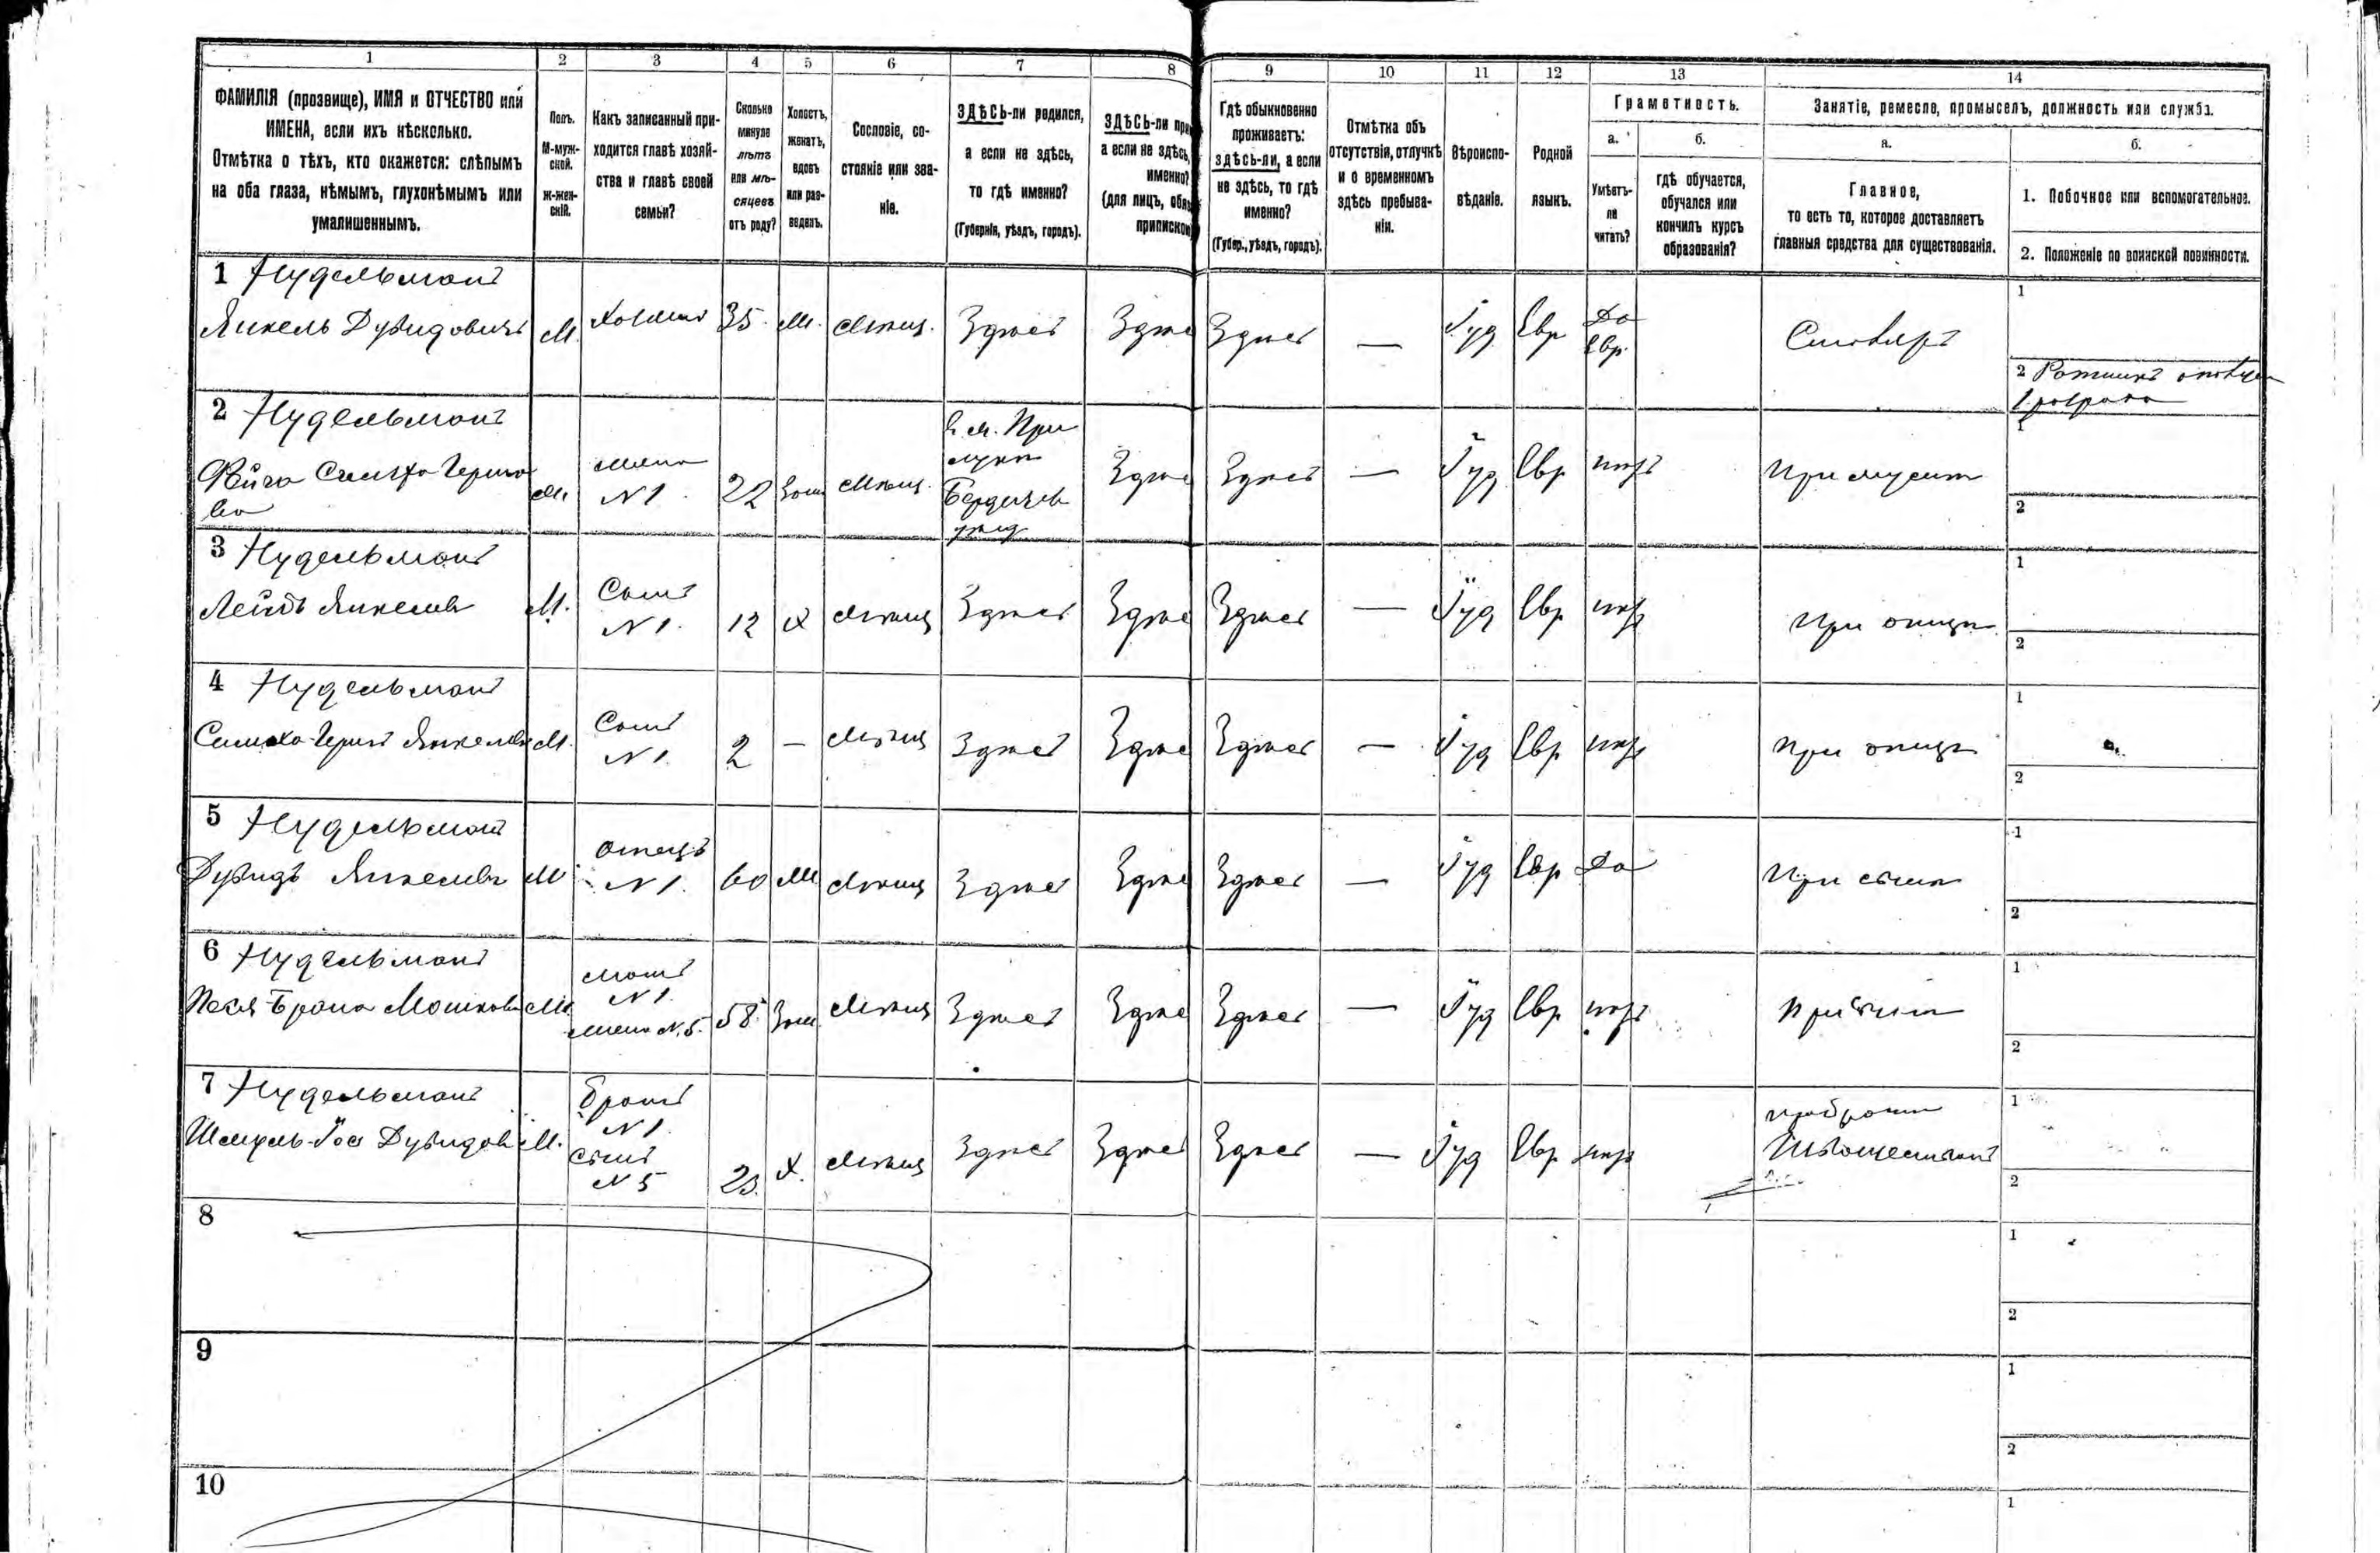 1 2 3 4 5 6 7 8 9 10 11 12 13 14
ФАМИЛІЯ (прозвище), ИМЯ и ОТЧЕСТВО или
ИМЕНА, если ихъ нѣсколько.
Отмѣтка о тѣхъ, кто окажется: слѣпымъ
на оба глаза, нѣмымъ, глухонѣмымъ или
умалишеннымъ.
Полъ.
М-муж-
ской.
ж-жен-
скій.
Какъ записанный при-
ходится главѣ хозяй-
ства и главѣ своей
семьи?
Сколько
минуло
лѣтъ
или мѣ-
сяцевъ
отъ роду?
Холостъ,
женатъ,
вдовъ
или раз-
веденъ.
Сословіе, со-
стояніе или зва-
ніе.
ЗДѢСЬ-ли родился,
а если не здѣсь,
то гдѣ именно?
(Губернія, уѣздъ, городъ).
ЗДѢСЬ-ли при
а если не здѣсь,
именно?
(для лицъ, обяз
припискою
Гдѣ обыкновенно
проживаетъ:
здѣсь-ли, а если
не здѣсь, то гдѣ
именно?
(Губер., уѣздъ, городъ).
Отмѣтка объ
отсутствіи, отлучкѣ
и о временномъ
здѣсь пребыва-
ніи.
Вѣроиспо-
вѣданіе.
Родной
языкъ.
Грамотность.
а.
Умѣетъ-
ли
читать?
б.
гдѣ обучается,
обучался или
кончилъ курсъ
образованія?
Занятіе, ремесло, промыселъ, должность или служба.
а.
Главное,
то есть то, которое доставляетъ
главныя средства для существованія.
б.
1. Побочное или вспомогательное.
2. Положеніе по воинской повинности.
1 Нудельманъ
Янкель Дувидовичъ М. 35. Ж. Мѣщ. Здѣсь Здѣс Здѣсь — Іуд Евр Да Евр. Столяръ
1
2 Ратникъ
2 Нудельманъ
жена
№ 1. 22 Зам Мѣщ. Бердичев уѣзд Здѣс Здѣсь — Іуд Евр нѣтъ При мужѣ
1
2
3 Нудельманъ
М. Сынъ
№ 1. 12 Х Мѣщ Здѣсь Здѣс Здѣсь — Іуд Евр нѣтъ При отцѣ
1
2
4 Нудельманъ
Симха-Герш Янкелев М. Сынъ
№ 1. 2 — Мѣщ Здѣсь Здѣс Здѣсь — Іуд Евр нѣтъ При отцѣ
1
2
5 Нудельманъ
Дувидъ Янкелев М Отецъ
№ 1. 60 Ж Мѣщ Здѣсь Здѣс Здѣсь — Іуд Евр Да При сынѣ
1
2
6 Нудельманъ
Мошкова Ж мать
№ 1.
жена № 5. 58 Зам Мѣщ Здѣсь Здѣс Здѣсь — Іуд Евр нѣтъ При сынѣ
1
2
7 Нудельманъ
Дувидов М. братъ
№ 1.
сынъ
№ 5 23. Х. Мѣщ Здѣсь Здѣсь Здѣсь — Іуд Евр нѣтъ при братѣ
1
2
8
1
2
9
1
2
10
1